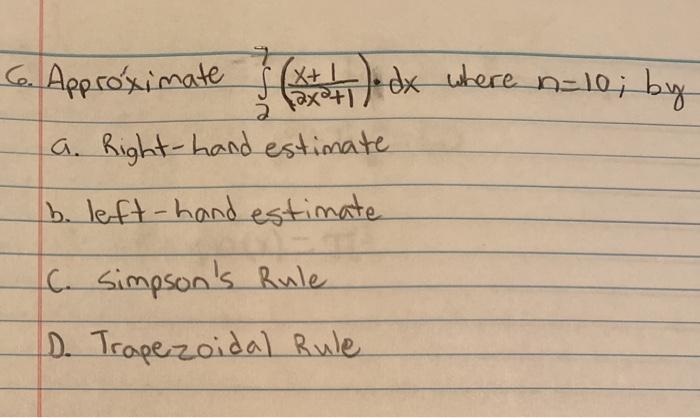 6. Approximate ∫₂⁷ (x+1/2x²+1)·dx where n=10; by
a. Right-hand estimate
b. left-hand estimate
C. Simpson's Rule
D. Trapezoidal Rule